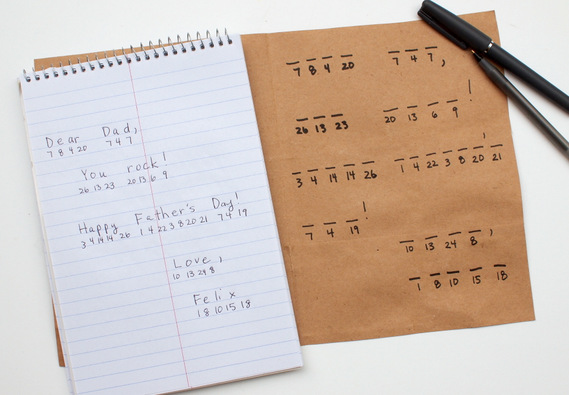 Dear Dad,
7 8 4 20 7 4 7
You rock!
26 13 23 20 13 6 9
Happy Father's Day!
3 4 14 14 26 1 4 22 3 8 20 21 7 4 19
Love,
10 13 24 8
Felix
1 8 10 15 18
7 8 4 20 7 4 7,
!
26 13 23 20 13 6 9
'
3 4 14 14 26 1 4 22 3 8 20 21
!
7 4 19
10 13 24 8,
1 8 10 15 18